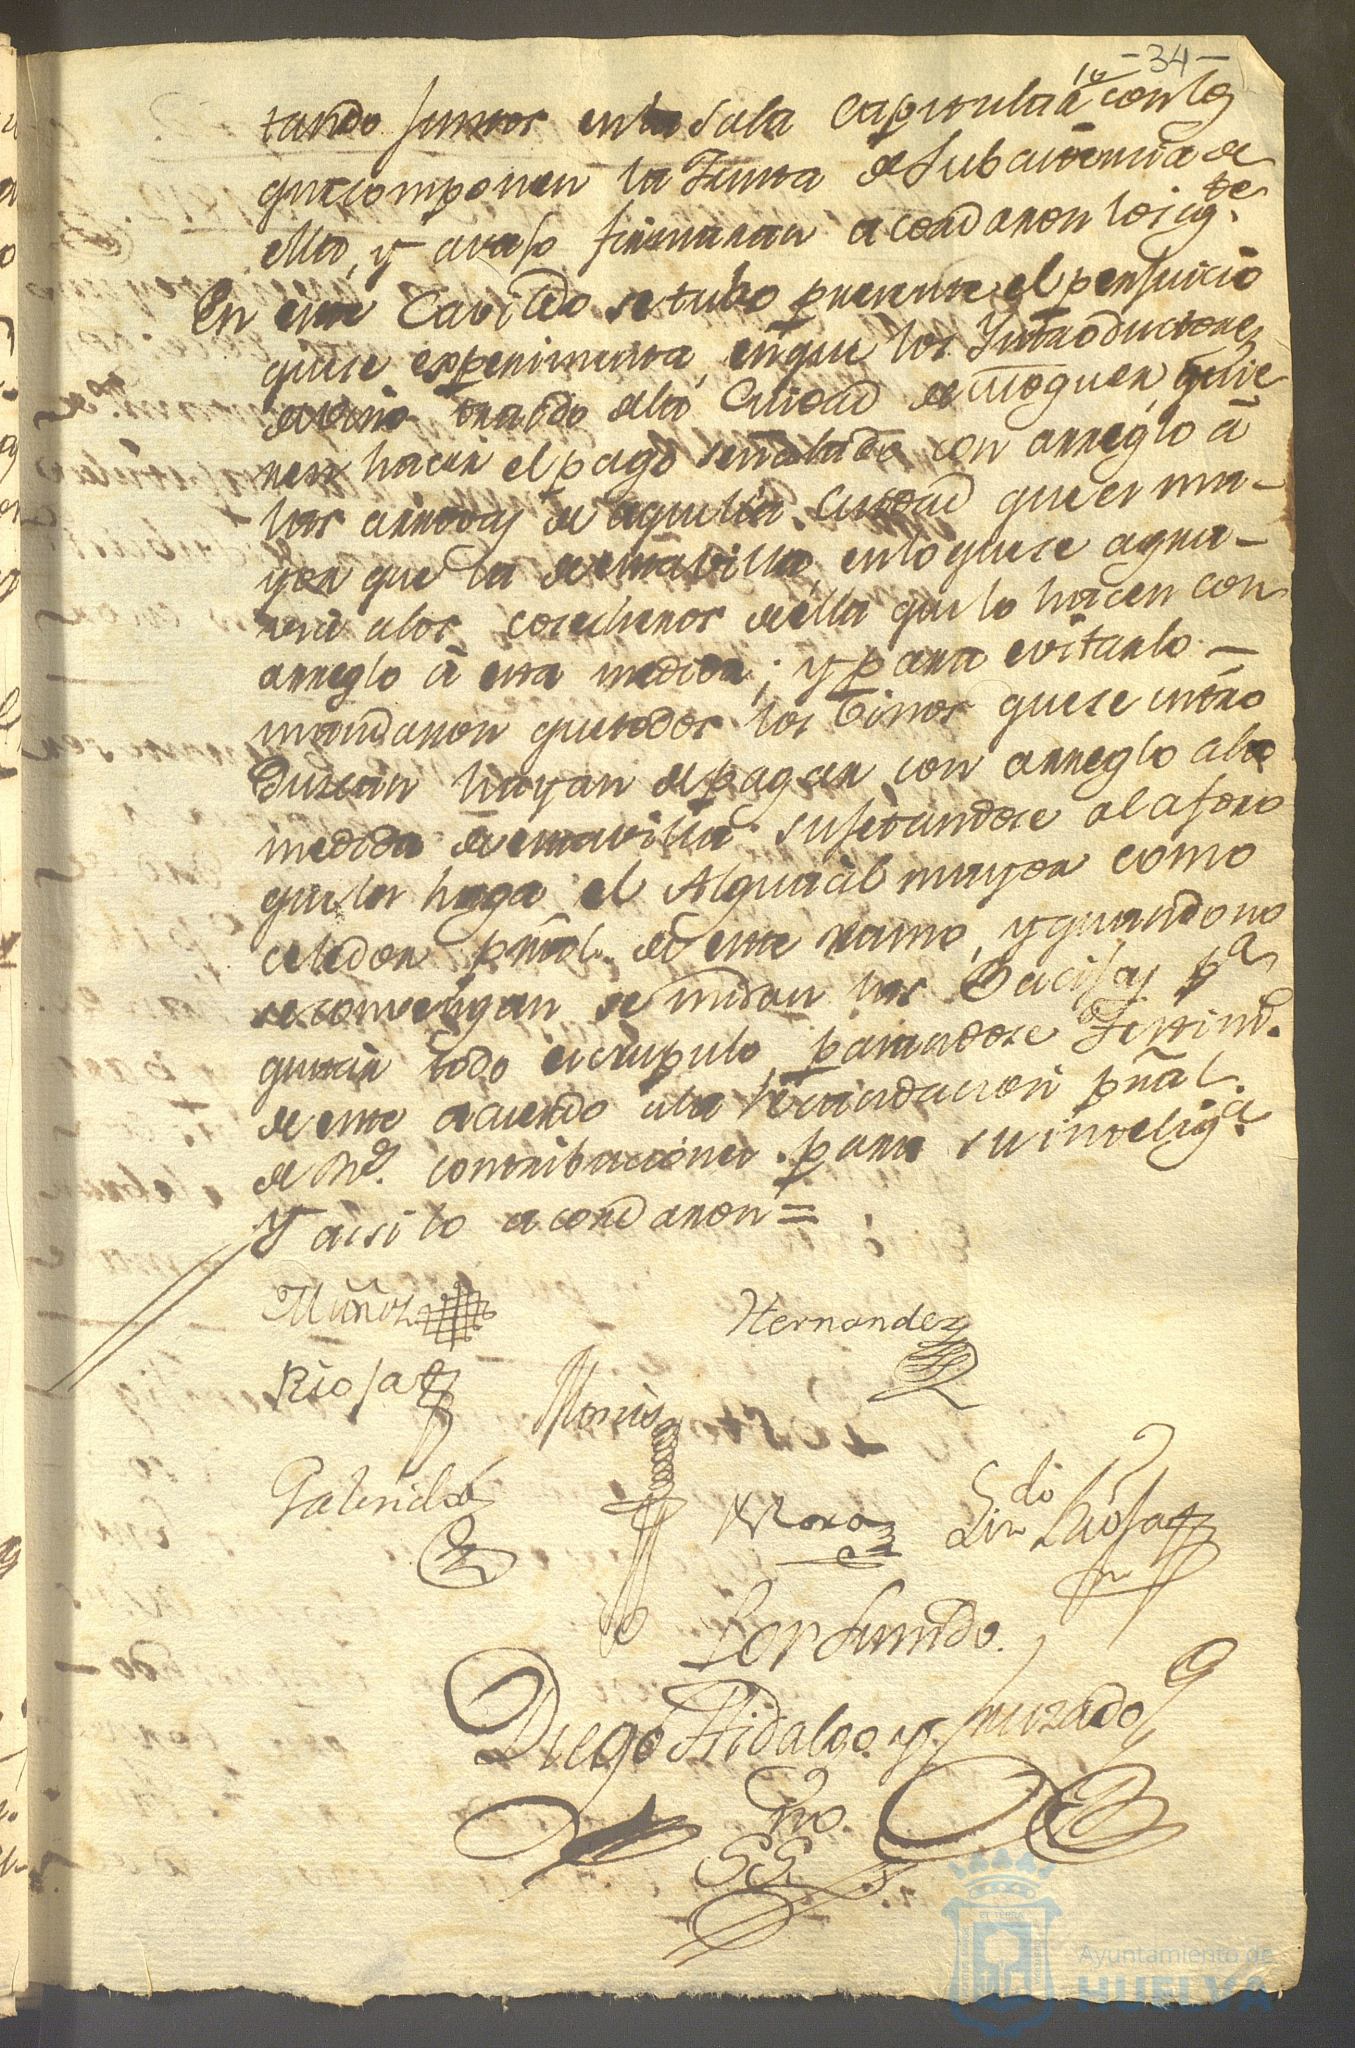 -34-
tando juntos en la Sala Capitular con los
que componen la Junta de Subcistencia de
ella, y avaso firmaran acordaron lo sig.te
En este Cavildo se tubo presente el perjuicio
que se experimenta, en que los Yntroductores
de vino traido de la Ciudad de Moguer, quie
ren hacer el pago señalado con arreglo à
las arrovas de aquella Ciudad que es ma-
yor que la de esta villa, en lo que se agra-
via a los cosecheros de ella que lo hacen con
arreglo à esta medida; y para evitarlo -
mandaron que todos los Vinos que se intro
duscan hayan de pagar con arreglo a la
medida de esta villa sujetandose al aforo
que les haga el Alguacil mayor como
celador prâl. de este ramo, y quando no
se convengan se midan las Bacijas pa
quitar todo escrupulo, pasandose Testim.
de este acuerdo a la recaudacion prâl.
de R.s contribuciones para su intelig.a
Y asi lo acordaron =
Muñoz
Hernandez
Rioja
Garrido
Mora
Lin.do Rioja
Por su mdo.
Diego Hidalgo y Cruzado
Sno.
Ayuntamiento de
HUELVA